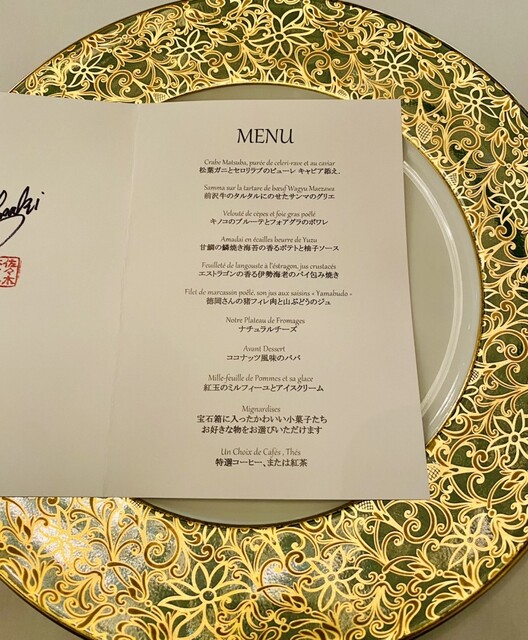 MENU
Crabe Matsuba, purée de celeri-rave et au caviar
松葉ガニとセロリラブのピューレ キャビア添え。
Samma sur la tartare de bœuf Wagyu Maezawa
前沢牛のタルタルにのせたサンマのグリエ
Velouté de cèpes et foie gras poêlé
キノコのブルーテとフォアグラのポワレ
Amadai en écailles beurre de Yuzu
甘鯛の鱗焼き海苔の香るポテトと柚子ソース
Feuilleté de langouste à l'éstragon, jus crustacés
エストラゴンの香る伊勢海老のパイ包み焼き
Filet de marcassin poêlé, son jus aux saisins « Yamabudo »
徳岡さんの猪フィレ肉と山ぶどうのジュ
Notre Plateau de Fromages
ナチュラルチーズ
Avant Dessert
ココナッツ風味のババ
Mille-feuille de Pommes et sa glace
紅玉のミルフィーユとアイスクリーム
Mignardises
宝石箱に入ったかわいい小菓子たち
お好きな物をお選びいただけます
Un Choice de Cafés , Thés
特選コーヒー、または紅茶
佐々木